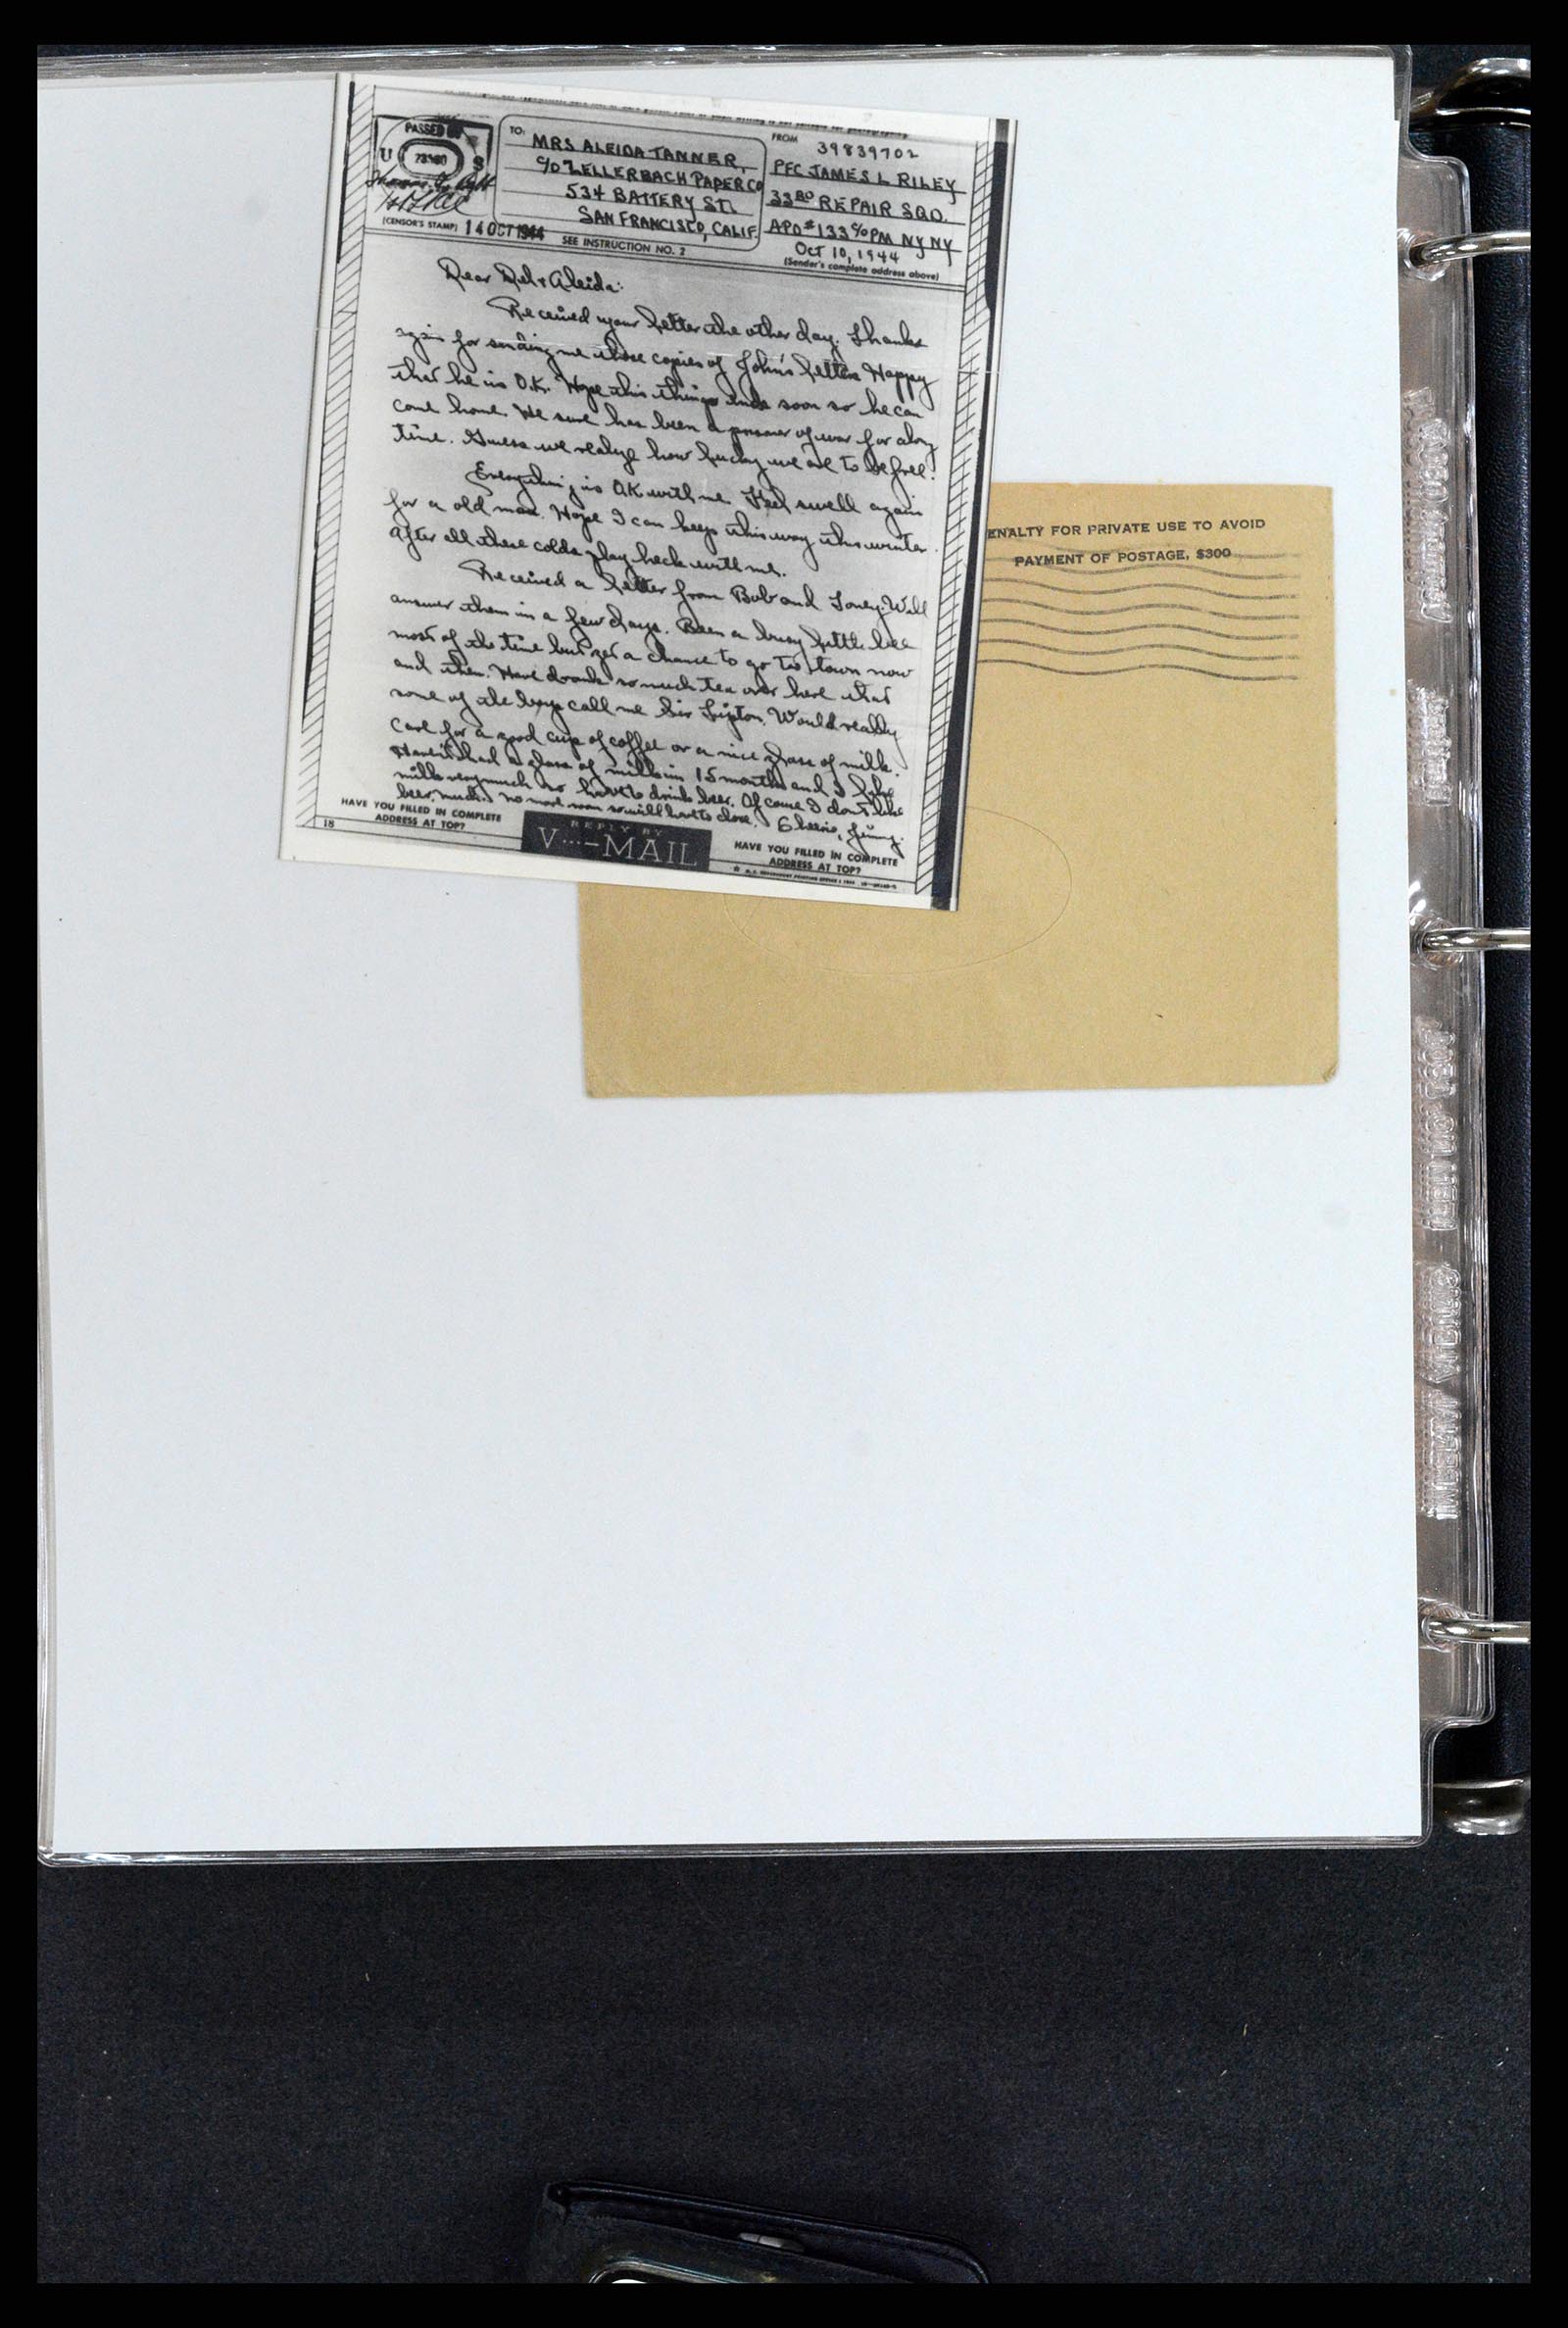 PASSED BY
U S
(CENSOR'S STAMP)
14 OCT 1944
SEE INSTRUCTION NO. 2
TO:
MRS ALEIDA TANNER,
c/o ZELLERBACH PAPER CO
534 BATTERY ST.
SAN FRANCISCO, CALIF.
FROM
39839702
PFC JAMES L RILEY
33RD REPAIR SQD.
APO #133 c/o PM NY NY
OCT 10, 1944
(Sender's complete address above)
Dear Del & Aleida:
Received your letter the other day. Thanks
again for sending me those copies of John's letters Happy
that he is O.K. Hope this things ends soon so he can
come home. He sure has been a prisoner of war for along
time. Guess we realize how lucky we are to be free!
Everything is O.K. with me. Feel swell again
for a old man. Hope I can keep this way this winter.
After all these colds play heck with me.
Received a letter from Bob and Toney. Will
answer them in a few days. Been a busy little bee
most of the time but get a chance to go to town now
and then. Have drank so much tea over here that
some of the boys call me Sir Lipton. Would really
care for a good cup of coffee or a nice glass of milk.
Haven't had a glass of milk in 15 months and I like
milk very much so have to drink beer. Of course I don't like
beer, much. No more room so will have to close. Cheerio, Jimmy.
HAVE YOU FILLED IN COMPLETE
ADDRESS AT TOP?
18
REPLY BY
V···—MAIL
HAVE YOU FILLED IN COMPLETE
ADDRESS AT TOP?
ENALTY FOR PRIVATE USE TO AVOID
PAYMENT OF POSTAGE, $300